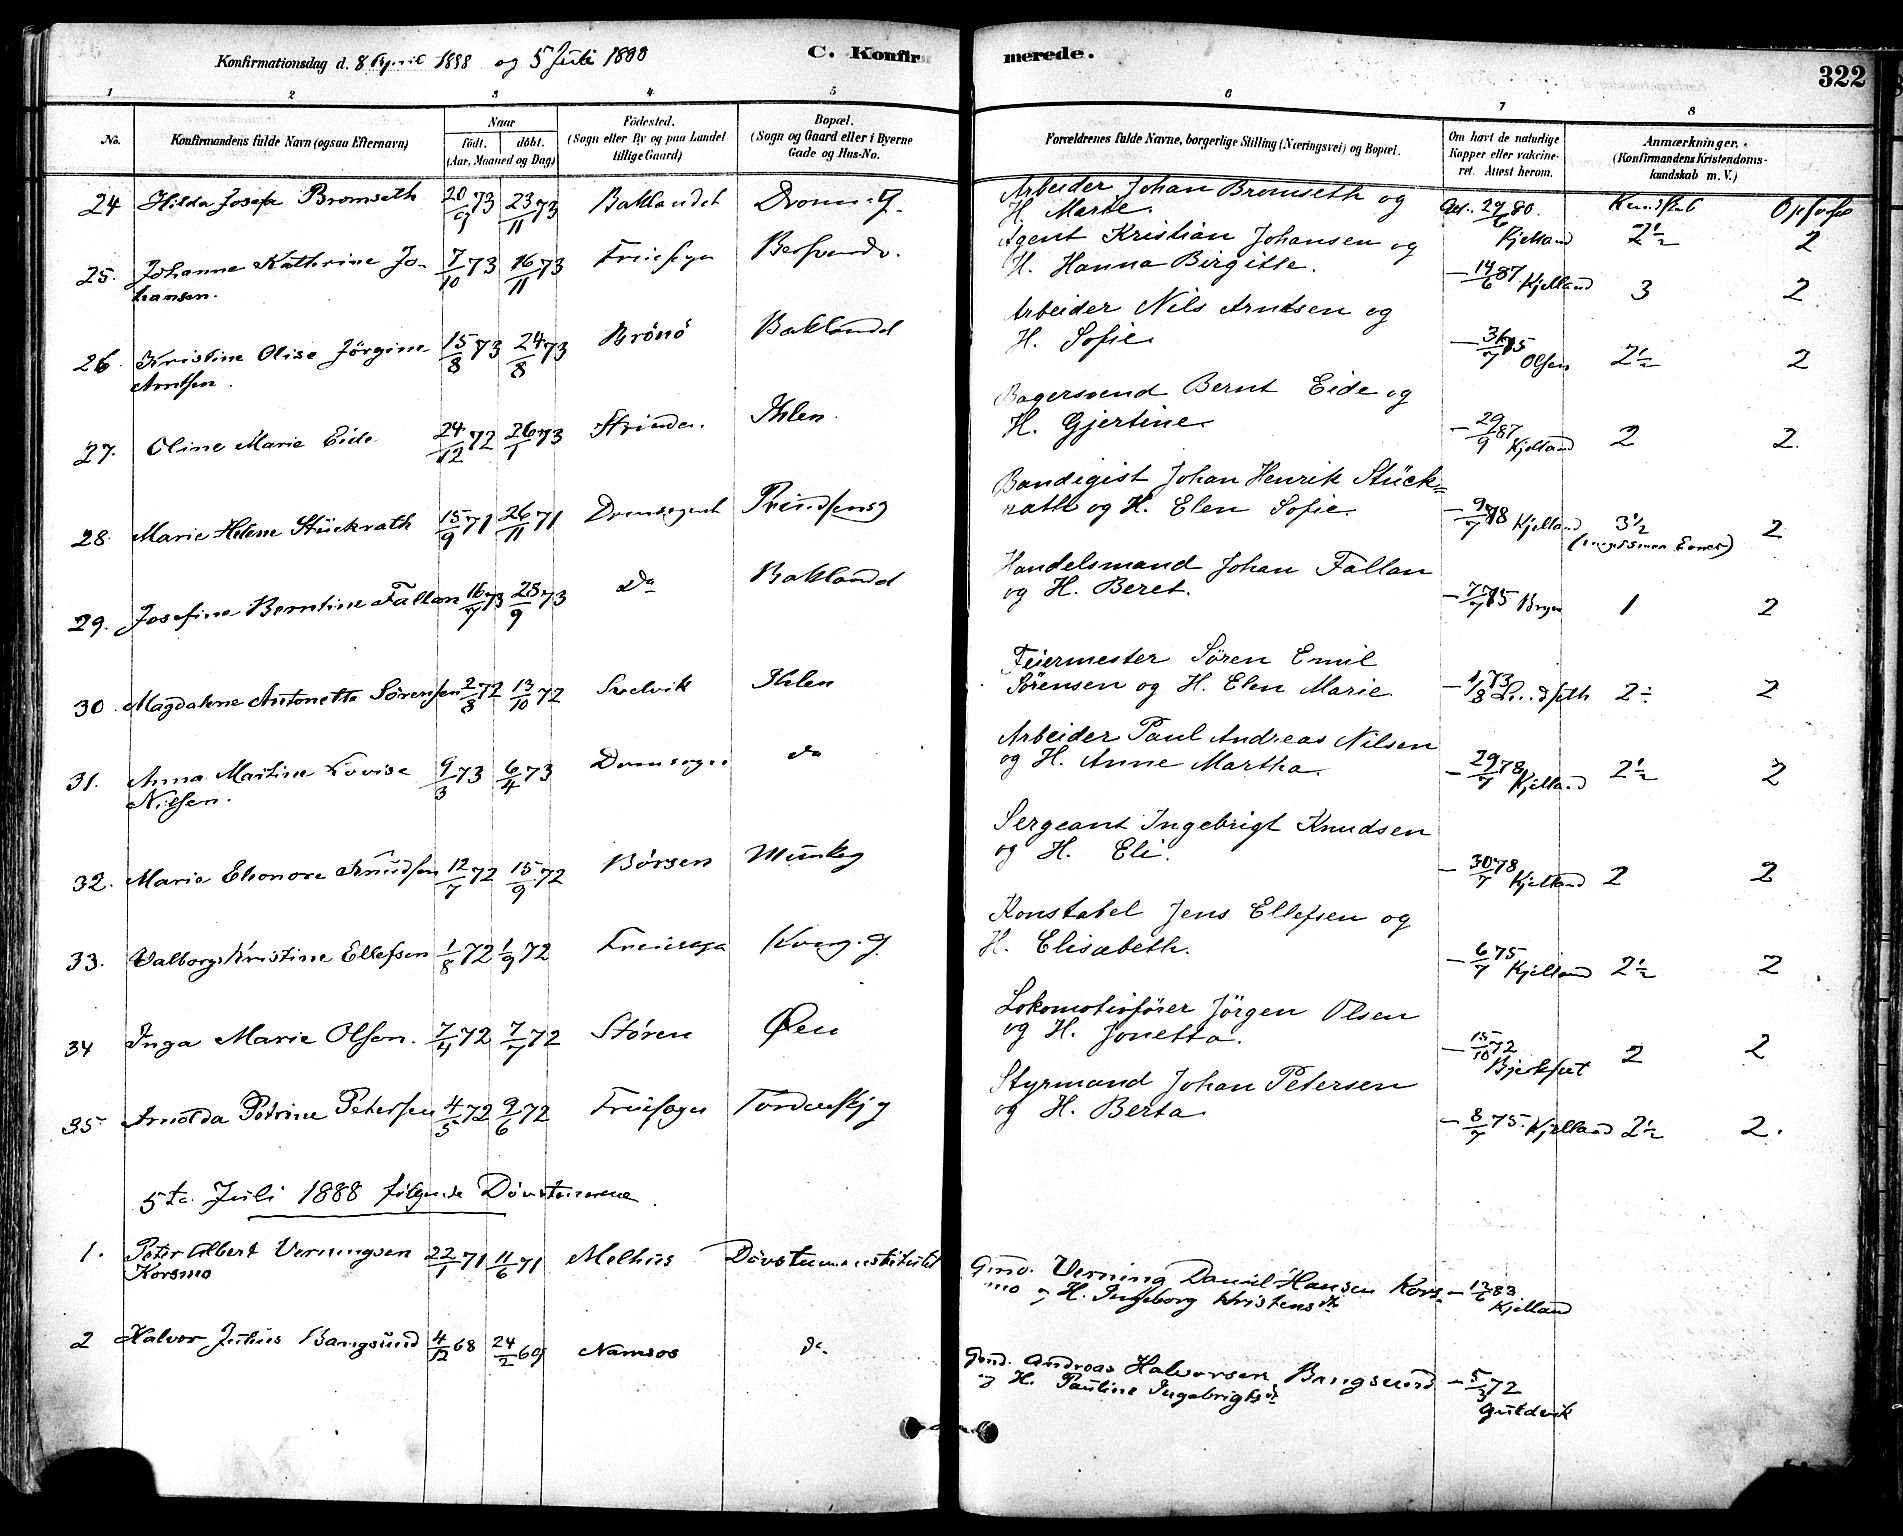 Konfirmationsdag d. 8 April 1888 og 5 Juli 1888
C. Konfirmerede.
322
1 2 3 4 5 6 7 8
No.
Konfirmandens fulde Navn (ogsaa Efternavn)
Naar
født. døbt.
(Aar, Maaned og Dag)
Fødested.
(Sogn eller By og paa Landet
tillige Gaard)
Bopæl.
(Sogn og Gaard eller i Byerne
Gade og Hus-No.
Forældrenes fulde Navne, borgerlige Stilling (Næringsvei) og Bopæl.
Om havt de naturlige
Kopper eller vakcine-
ret. Attest herom.
Anmærkninger.
(Konfirmandens Kristendoms-
kundskab m. V.)
24 Hilda Josefa Bromseth 20/9 73 23/11 73 Baklandet Dronn. g. Arbeider Johan Bromseth og
H. Marte. 29/6 80. Kjelland Kundskab 2 1/2 Opførsel 2
25. Johanne Kathrine Jo-
hansen. 7/10 73 16/11 73 Agent Kristian Johansen og
H. Hanna Birgitte. – 14/6 87 Kjelland 3 2
26. Kristine Olise Jörgine
Arntsen. 15/8 73 24/8 73 Brönö Baklandet Arbeider Nils Arntsen og
H. Sofie. Olsen 2 1/2 2
27. Oline Marie Eide 24/12 72 26/1 73 Strinden. Ihlen. Bagersvend Bernt Eide og
H. Gjertine – 29/9 87 Kjelland 2 2.
28. Marie Helene Stückrath 15/9 71 26/11 71 Prindsensg Bandigist Johan Henrik Stück=
rath og H. Elen Sofie. – 9/7 78 Kjelland 3 1/2 2
29. Josefine Berntine Fallan 16/7 73 28/9 73 do Bakland Handelsmand Johan Fallan
og H. Beret. 1 2
30. Magdalene Antonette Sörensen 2/8 72 13/10 72 Svelvik Ihlen Feiermester Sören Emil
Sörensen og H. Elen Marie – 1/8 73 2÷ 2
31. Anna Martine Lovise
Nilsen. 9/3 73 6/4 73 do Arbeider Paul Andreas Nilsen
og H. Anne Martha. – 29/7 78 Kjelland 2 1/2 2
32. Marie Elionore Knudsen 12/7 72 15/9 72 Börsen Munkeg Sergeant Ingebrigt Knudsen
og H. Eli. – 30/7 78 Kjelland 2 2
33. Valborg Kristine Ellefsen 1/8 72 1/9 72 Sergeant Konstabel Jens Ellefsen og
H. Elisabeth. – 6/7 75 Kjelland 2 1/2 2
34 Inga Marie Olsen. 7/4 72 7/7 72 Stören Øen Lokomotivförer Jörgen Olsen
og H. Jonetta. – 15/10 72 2 2
35 Arnolda Petrine Petersen 4/5 72 9/6 72 Fruesogn Tordenskj g Styrmand Johan Petersen
og H. Berta – 8/7 75. Kjelland 2 1/2 2.
5te Juli 1888 følgende Døvstumme
1. Peter Albert Verningsen
Korsmo 22/1 71 11/6 71 Melhus Gmd. Verning Daniel Hansen Kors-
mo og H. Ingeborg Kristensdtr – 83 Kjelland
2 Halvor Julius Bangsund 4/12 68 24/2 69 Namsos do. Gmd. Andreas Halvorsen Bangsund
og H. Pauline Ingebrigtsdtr – 5/3 72